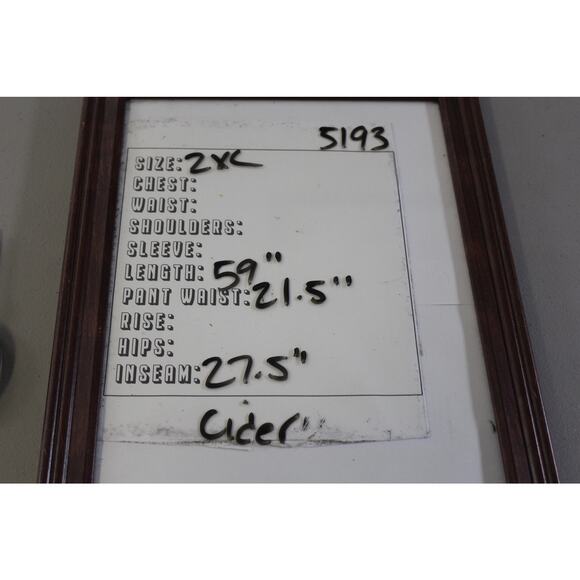 5193
SIZE: 2XL
CHEST:
WAIST:
SHOULDERS:
SLEEVE:
LENGTH: 59"
PANT WAIST: 21.5"
RISE:
HIPS:
INSEAM: 27.5"
Cider